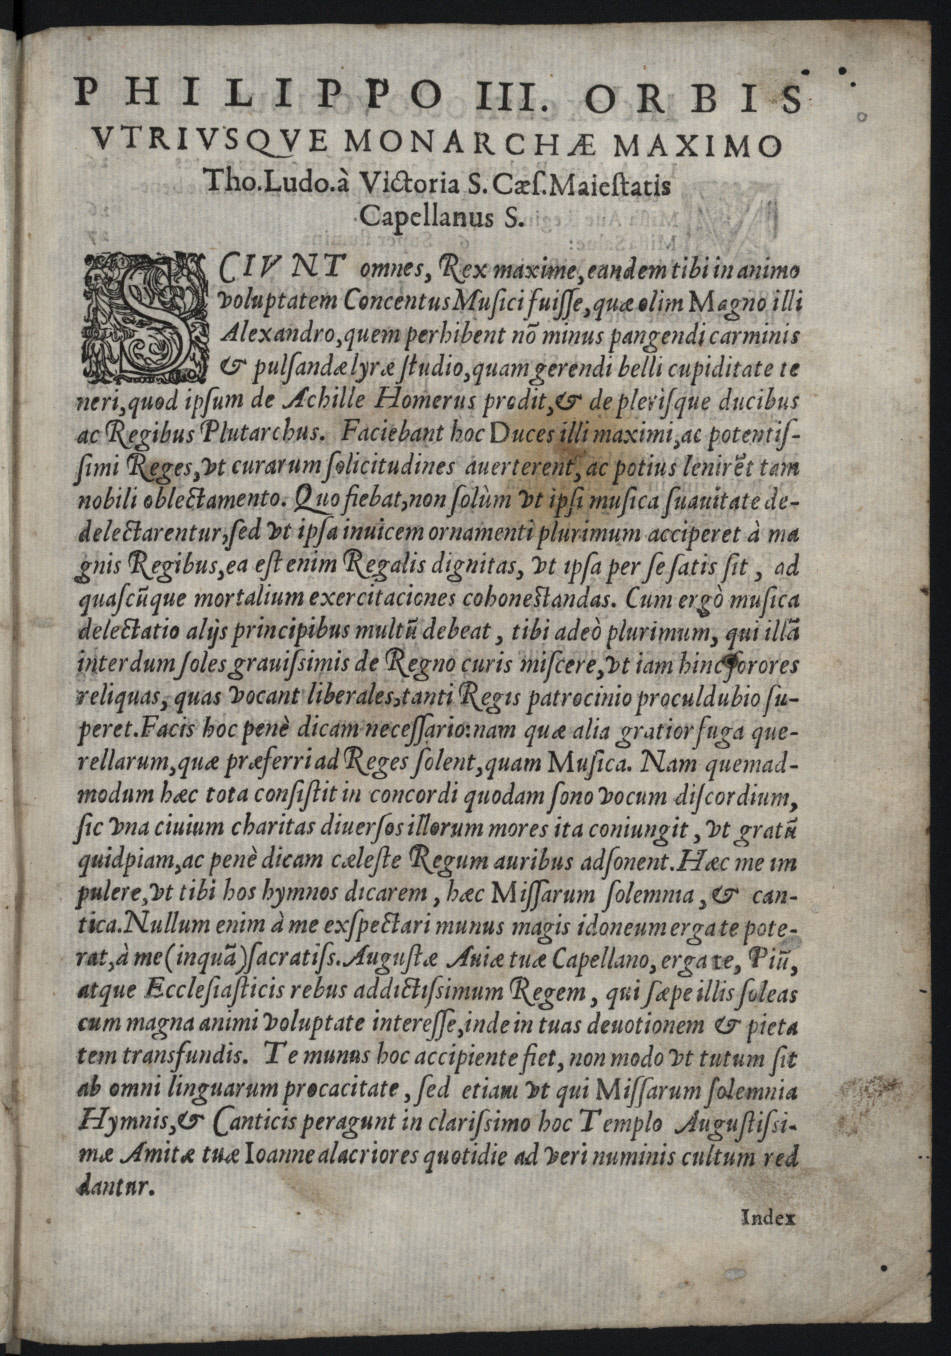 PHILIPPO III. ORBIS
VTRIVSQVE MONARCHÆ MAXIMO
Tho.Ludo.à Victoria S.Cæſ.Maieſtatis
Capellanus S.
SCIVNT omnes, Rex maxime, eandem tibi in animo
voluptatem Concentus Muſici fuiſſe, quæ olim Magno illi
Alexandro, quem perhibent nõ minus pangendi carminis
& pulſandæ lyræ ſtudio, quam gerendi belli cupiditate te
neri, quod ipſum de Achille Homerus prodit, & de pleriſque ducibus
ac Regibus Plutarchus. Faciebant hoc Duces illi maximi, ac potentiſ-
ſimi Reges, vt curarum ſolicitudines auerterent, ac potius lenirẽt tam
nobili oblectamento. Quo fiebat, non ſolùm vt ipſi muſica ſuauitate de-
delectarentur, ſed vt ipſa inuicem ornamenti plurimum acciperet à ma
gnis Regibus, ea eſt enim Regalis dignitas, vt ipſa per ſe ſatis ſit, ad
quaſcũque mortalium exercitaciones cohoneſtandas. Cum ergò muſica
delectatio alijs principibus multũ debeat, tibi adeò plurimum, qui illã
interdum ſoles grauiſsimis de Regno curis miſcere, vt iam hinc ſorores
reliquas, quas vocant liberales, tanti Regis patrocinio proculdubio ſu-
peret. Facis hoc penè dicam neceſſario: nam quæ alia gratior fuga que-
rellarum, quæ præferri ad Reges ſolent, quam Muſica. Nam quemad-
modum hæc tota conſiſtit in concordi quodam ſono vocum diſcordium,
ſic vna ciuium charitas diuerſos illorum mores ita coniungit, vt gratũ
quidpiam, ac penè dicam cæleſte Regum auribus adſonent. Hæc me im
pulere, vt tibi hos hymnos dicarem, hæc Miſſarum ſolemnia, & can-
tica. Nullum enim à me exſpectari munus magis idoneum erga te pote-
rat, à me (inquã) ſacratiſs. Auguſtæ Auiæ tuæ Capellano, erga te, Piũ,
atque Eccleſiaſticis rebus addictiſsimum Regem, qui ſæpe illis ſoleas
cum magna animi voluptate intereſſe, inde in tuas deuotionem & pieta
tem transfundis. Te munus hoc accipiente fiet, non modo vt tutum ſit
ab omni linguarum procacitate, ſed etiam vt qui Miſſarum ſolemnia
Hymnis, & Canticis peragunt in clariſsimo hoc Templo Auguſtiſsi-
mæ Amitæ tuæ Ioanne alacriores quotidie ad veri numinis cultum red
dantur.
Index